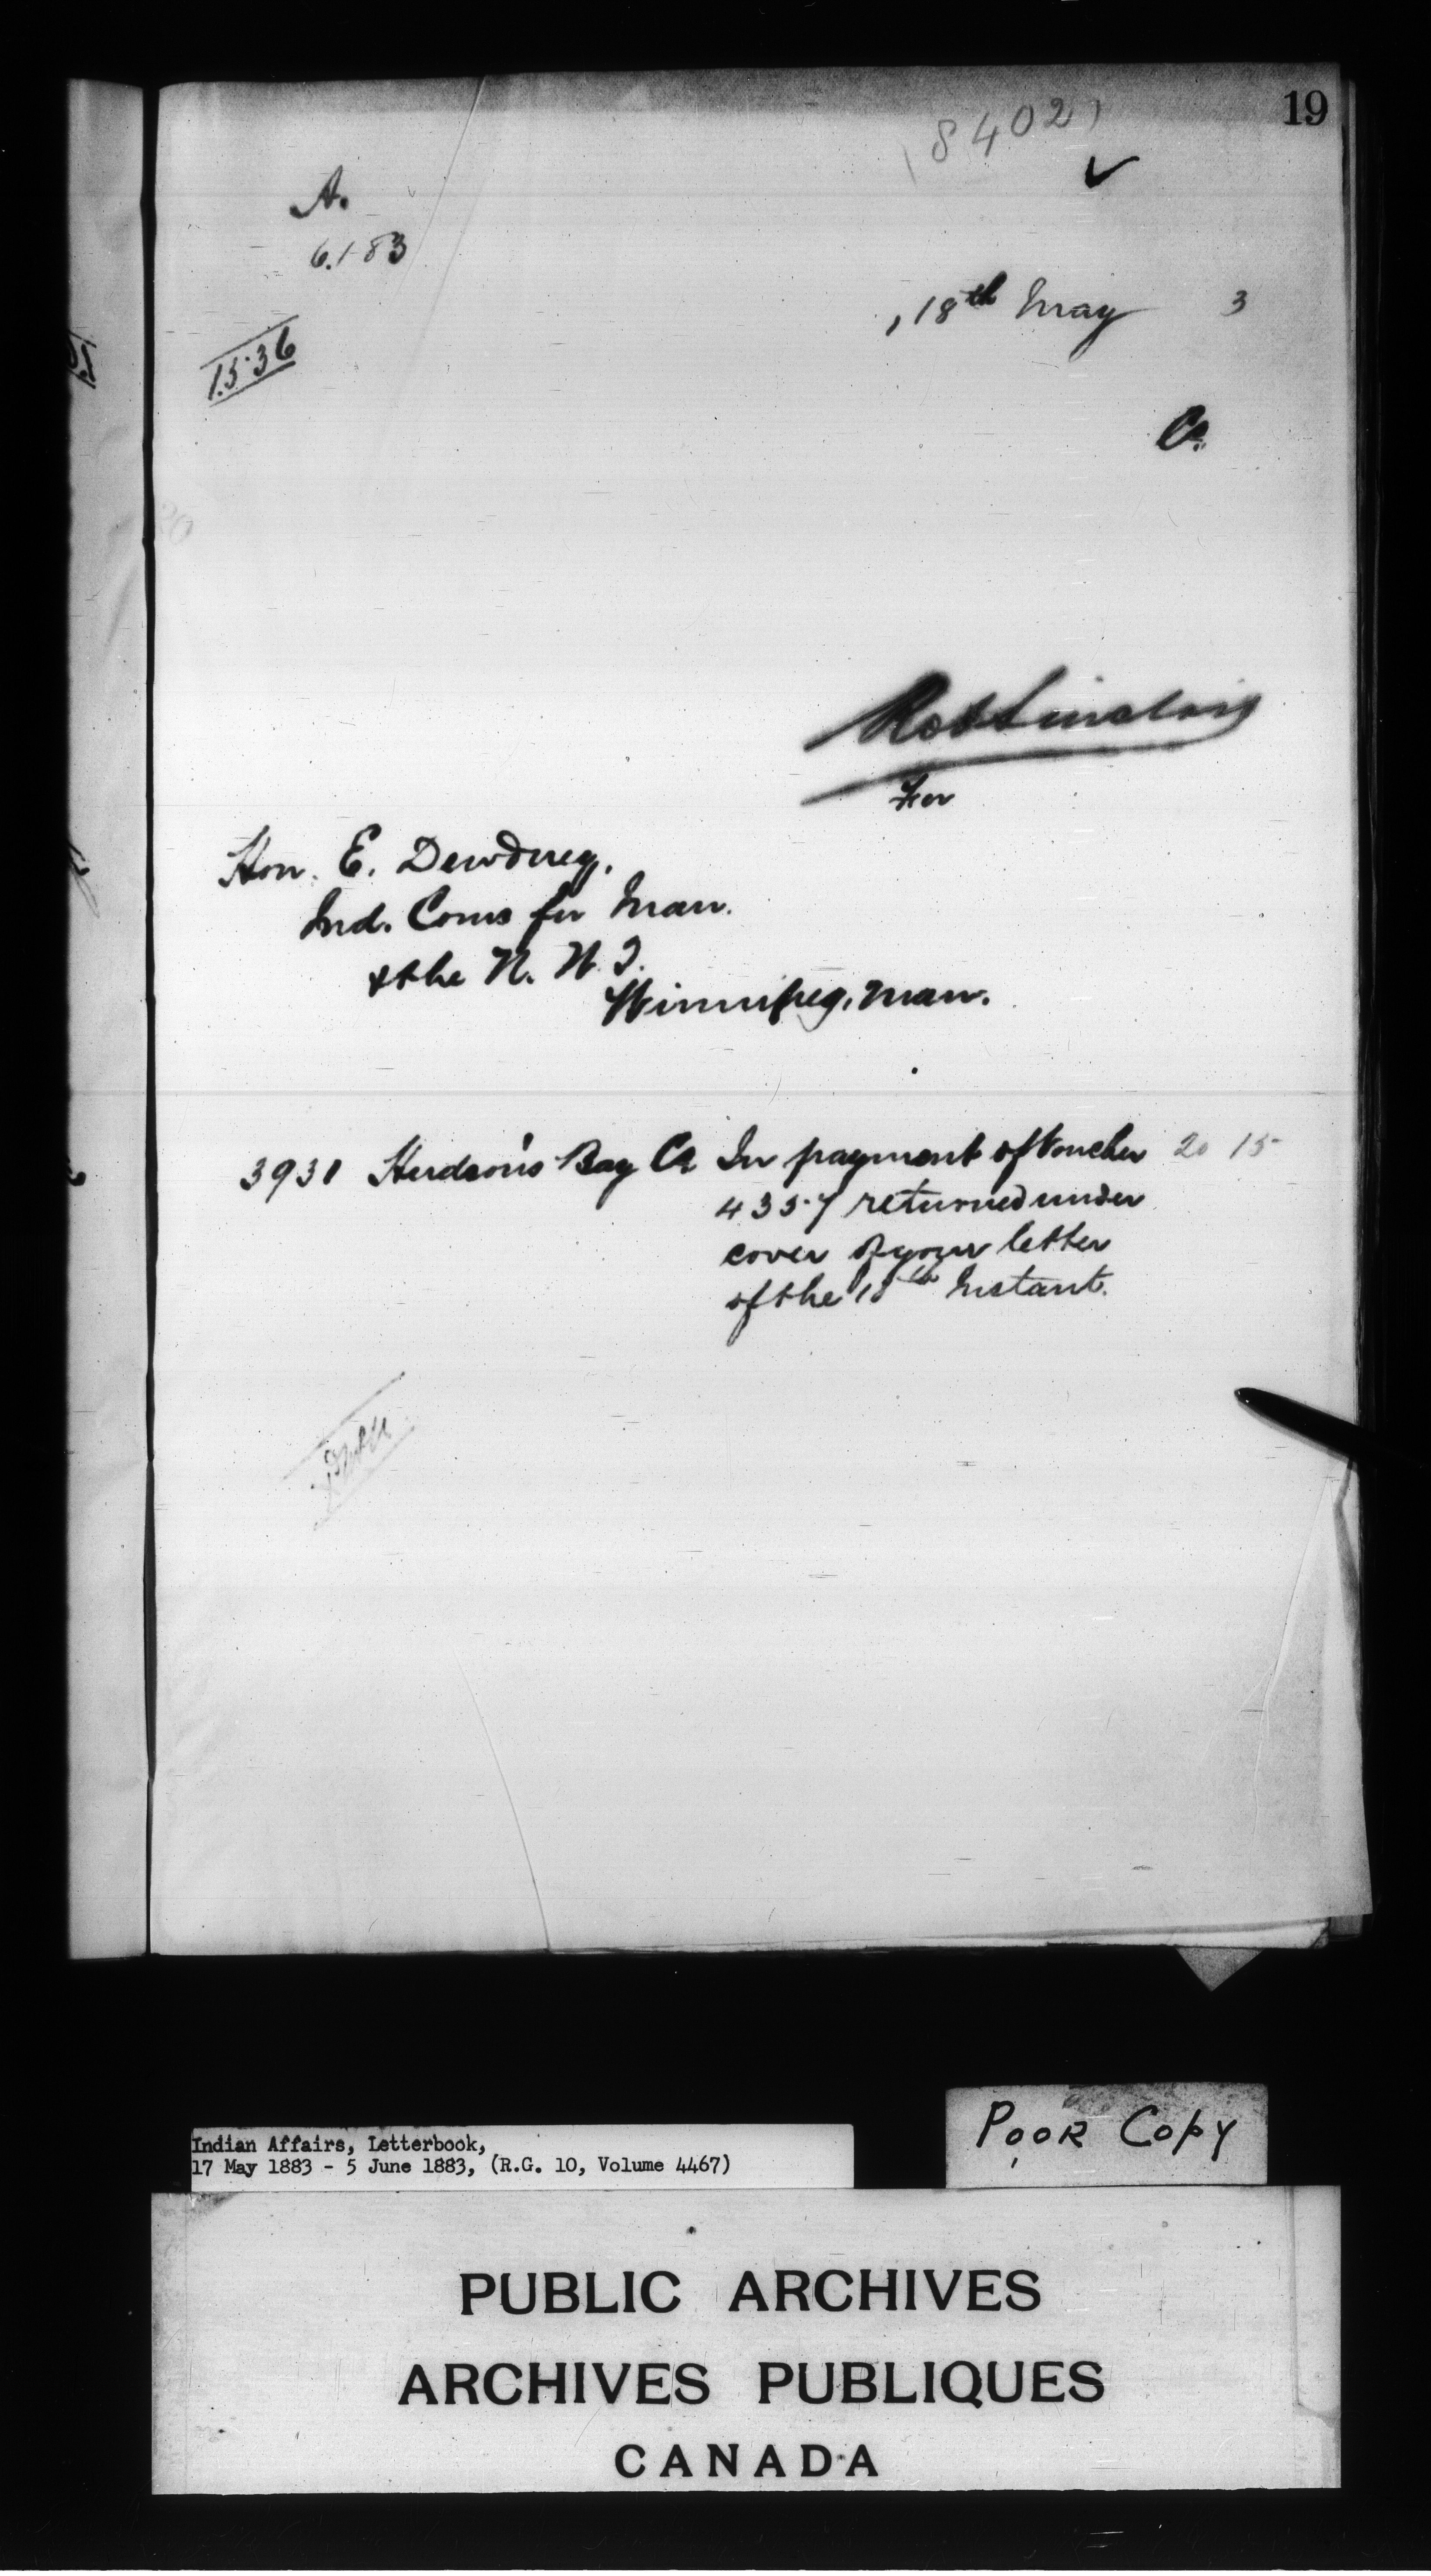 19
(8402)
A.
6.1.83
, 18th May 3
1536
Co.
Rob Sinclair
For
Hon. E. Dewdney.
Ind. Coms for Man.
& the N. W. T.
Winnipeg. Man.
3931 Hudson's Bay Co In payment of Voucher 20 15
4357 returned under
cover of your letter
of the 18th Instant.
Indian Affairs, Letterbook,
17 May 1883 - 5 June 1883, (R.G. 10, Volume 4467)
POOR COPY
PUBLIC ARCHIVES
ARCHIVES PUBLIQUES
CANADA